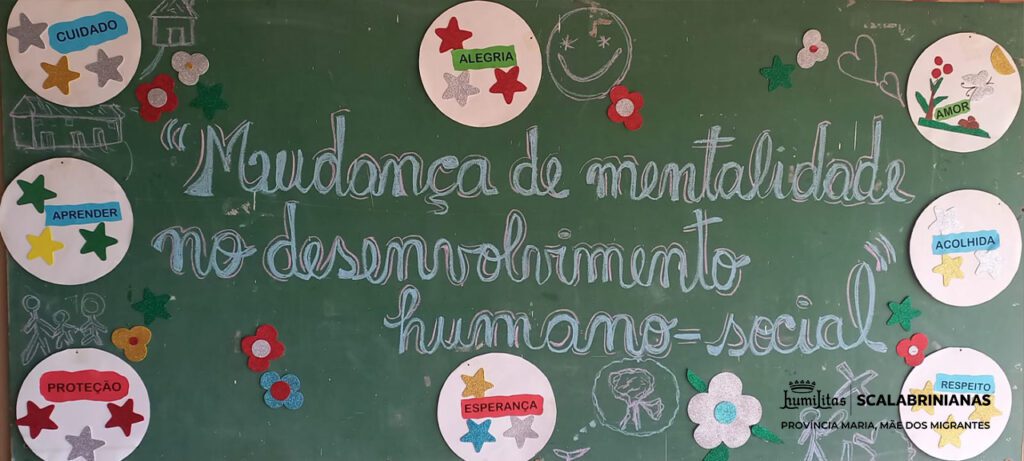 CUIDADO
ALEGRIA
AMOR
"Mudança de mentalidade
APRENDER
ACOLHIDA
no desenvolvimento
humano-social"
PROTEÇÃO
ESPERANÇA
RESPEITO
humilitas SCALABRINIANAS
PROVÍNCIA MARIA, MÃE DOS MIGRANTES